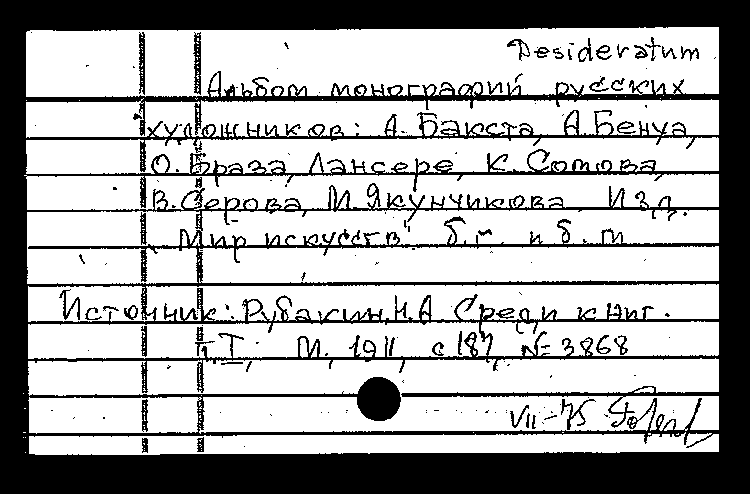 Desideratum
Альбом монографий русских
художников: А. Бакста, А. Бенуа,
О. Браза, Лансере, К. Сомова,
В. Серова, М. Якунчикова Изд.
"Мир искусств" б.г. и б. м
Источник: Рубакин, Н.А. Среди книг.
т. I, М., 1911, с 187, № 3868
VII-75